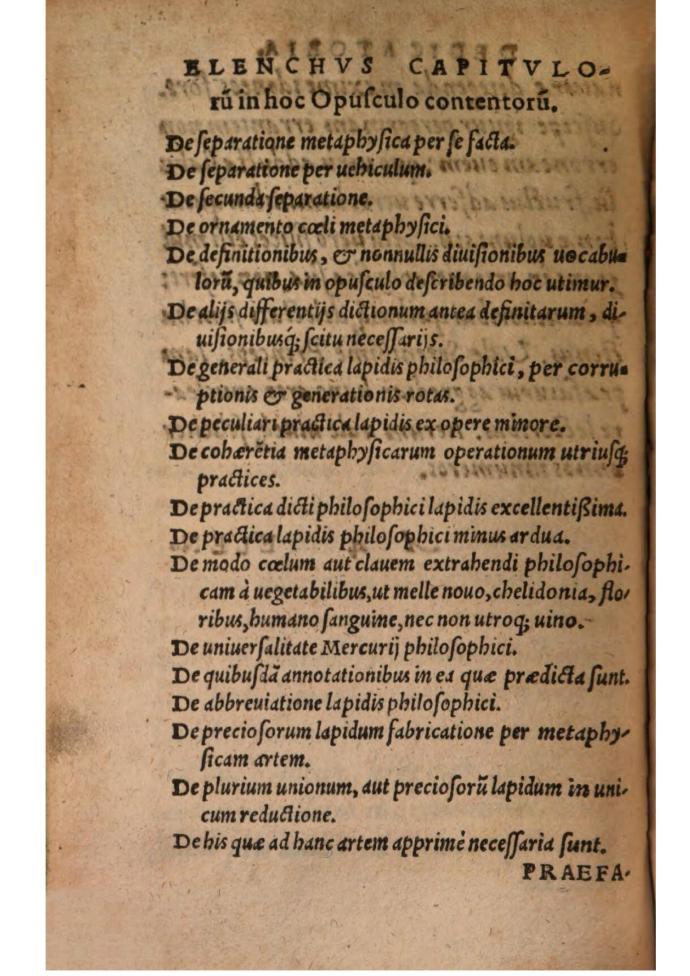 ELENCHVS CAPITVLO-
rũ in hoc Opuſculo contentorũ.
De ſeparatione metaphyſica per ſe facta.
De ſeparatione per uehiculum.
De ſecunda ſeparatione.
De ornamento cœli metaphyſici.
De definitionibus, & nonnullis diuiſionibus uocabu-
lorũ, quibus in opuſculo deſcribendo hoc utimur.
De alijs differentijs dictionum antea definitarum, di-
uiſionibusq́; ſcitu neceſſarijs.
De generali practica lapidis philoſophici, per corru-
ptionis & generationis rotas.
De peculiari practica lapidis ex opere minore.
De cohærẽtia metaphyſicarum operationum utriuſq;
practices.
De practica dicti philoſophici lapidis excellentißima.
De practica lapidis philoſophici minus ardua.
De modo cœlum aut clauem extrahendi philoſophi-
cam à uegetabilibus, ut melle nouo, chelidonia, flo-
ribus, humano ſanguine, nec non utroq; uino.
De uniuerſalitate Mercurij philoſophici.
De quibuſdã annotationibus in ea quæ prædicta ſunt.
De abbreuiatione lapidis philoſophici.
De precioſorum lapidum fabricatione per metaphy-
ſicam artem.
De plurium unionum, aut precioſorũ lapidum in uni-
cum reductione.
De his quæ ad hanc artem apprimè neceſſaria ſunt.
PRAEFA-